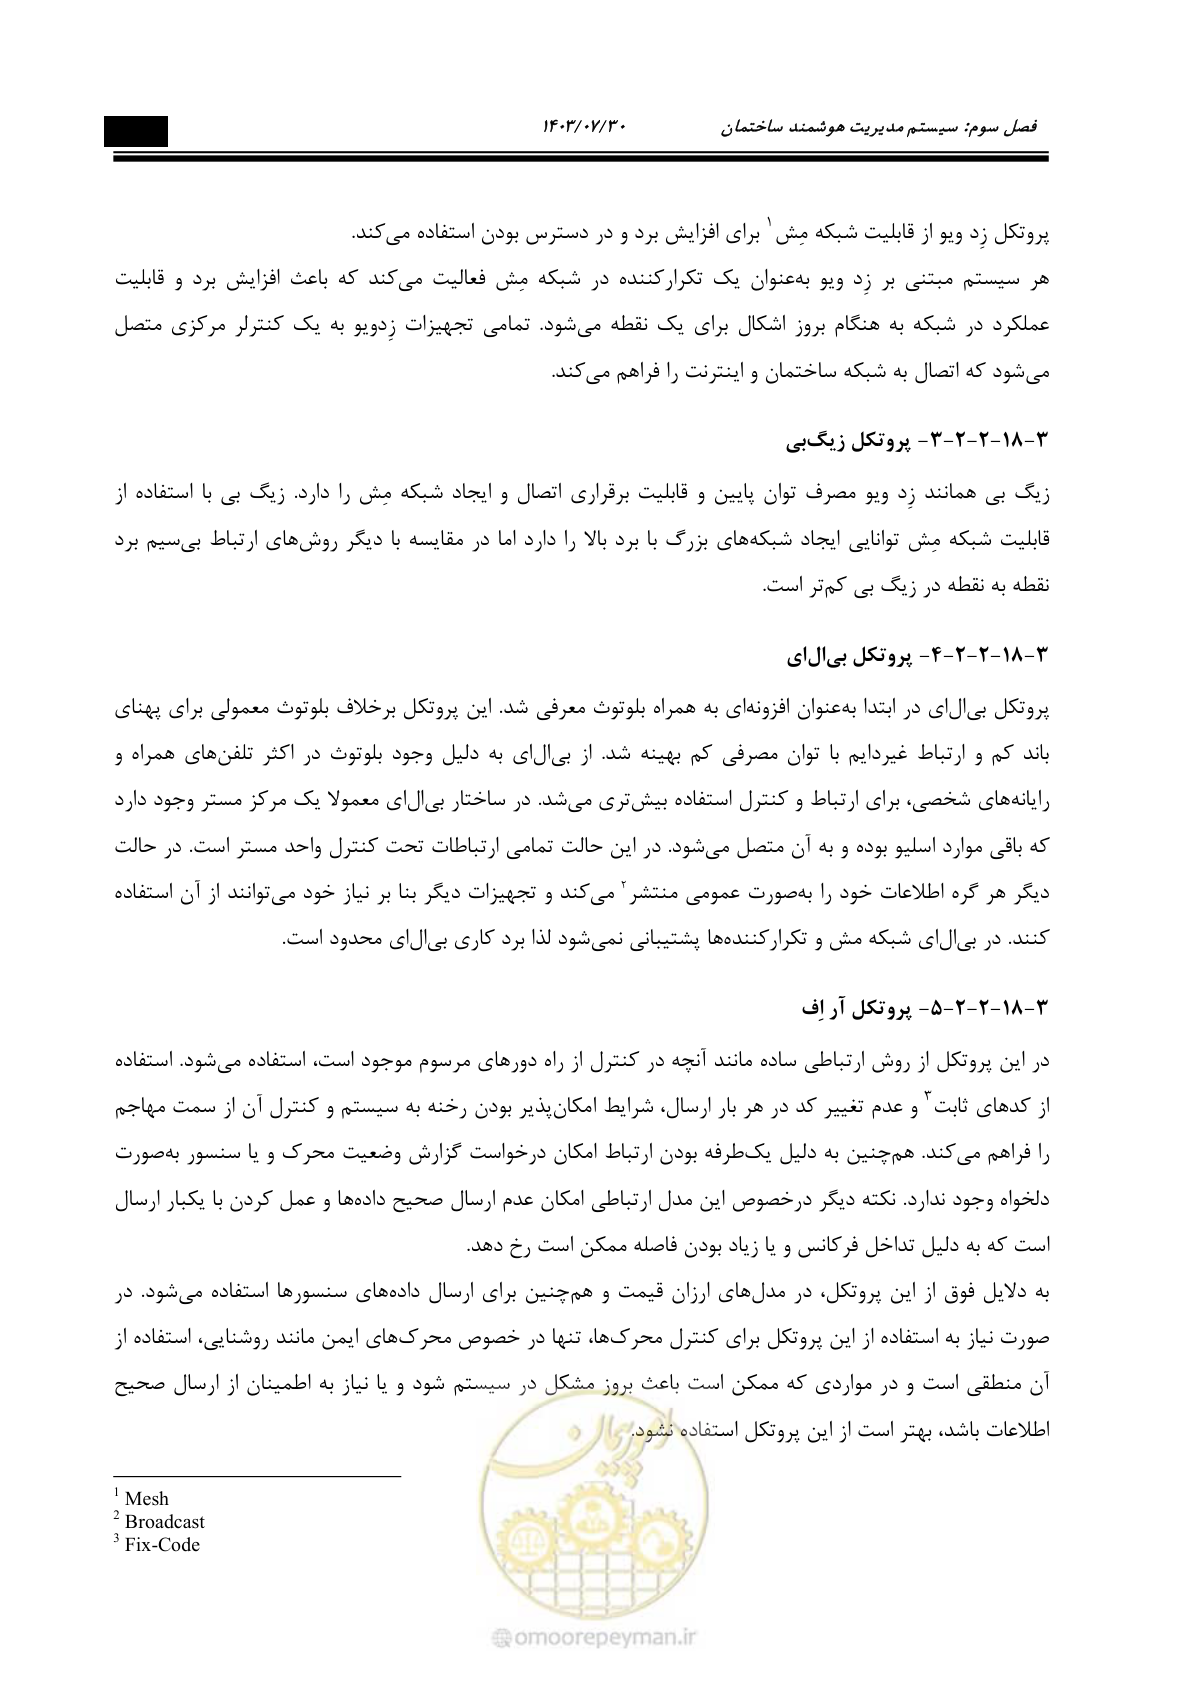 فصل سوم: سیستم مدیریت هوشمند ساختمان ۱۴۰۳/۰۷/۳۰
پروتکل زِد ویو از قابلیت شبکه مِش۱ برای افزایش برد و در دسترس بودن استفاده می‌کند.
هر سیستم مبتنی بر زِد ویو به‌عنوان یک تکرارکننده در شبکه مِش فعالیت می‌کند که باعث افزایش برد و قابلیت
عملکرد در شبکه به هنگام بروز اشکال برای یک نقطه می‌شود. تمامی تجهیزات زِدویو به یک کنترلر مرکزی متصل
می‌شود که اتصال به شبکه ساختمان و اینترنت را فراهم می‌کند.
۳-۱۸-۲-۲-۳- پروتکل زیگ‌بی
زیگ بی همانند زِد ویو مصرف توان پایین و قابلیت برقراری اتصال و ایجاد شبکه مِش را دارد. زیگ بی با استفاده از
قابلیت شبکه مِش توانایی ایجاد شبکه‌های بزرگ با برد بالا را دارد اما در مقایسه با دیگر روش‌های ارتباط بی‌سیم برد
نقطه به نقطه در زیگ بی کم‌تر است.
۳-۱۸-۲-۲-۴- پروتکل بی‌ال‌ای
پروتکل بی‌ال‌ای در ابتدا به‌عنوان افزونه‌ای به همراه بلوتوث معرفی شد. این پروتکل برخلاف بلوتوث معمولی برای پهنای
باند کم و ارتباط غیردایم با توان مصرفی کم بهینه شد. از بی‌ال‌ای به دلیل وجود بلوتوث در اکثر تلفن‌های همراه و
رایانه‌های شخصی، برای ارتباط و کنترل استفاده بیش‌تری می‌شد. در ساختار بی‌ال‌ای معمولا یک مرکز مستر وجود دارد
که باقی موارد اسلیو بوده و به آن متصل می‌شود. در این حالت تمامی ارتباطات تحت کنترل واحد مستر است. در حالت
دیگر هر گره اطلاعات خود را به‌صورت عمومی منتشر۲ می‌کند و تجهیزات دیگر بنا بر نیاز خود می‌توانند از آن استفاده
کنند. در بی‌ال‌ای شبکه مش و تکرارکننده‌ها پشتیبانی نمی‌شود لذا برد کاری بی‌ال‌ای محدود است.
۳-۱۸-۲-۲-۵- پروتکل آر اِف
در این پروتکل از روش ارتباطی ساده مانند آنچه در کنترل از راه دورهای مرسوم موجود است، استفاده می‌شود. استفاده
از کدهای ثابت۳ و عدم تغییر کد در هر بار ارسال، شرایط امکان‌پذیر بودن رخنه به سیستم و کنترل آن از سمت مهاجم
را فراهم می‌کند. هم‌چنین به دلیل یک‌طرفه بودن ارتباط امکان درخواست گزارش وضعیت محرک و یا سنسور به‌صورت
دلخواه وجود ندارد. نکته دیگر درخصوص این مدل ارتباطی امکان عدم ارسال صحیح داده‌ها و عمل کردن با یکبار ارسال
است که به دلیل تداخل فرکانس و یا زیاد بودن فاصله ممکن است رخ دهد.
به دلایل فوق از این پروتکل، در مدل‌های ارزان قیمت و هم‌چنین برای ارسال داده‌های سنسورها استفاده می‌شود. در
صورت نیاز به استفاده از این پروتکل برای کنترل محرک‌ها، تنها در خصوص محرک‌های ایمن مانند روشنایی، استفاده از
آن منطقی است و در مواردی که ممکن است باعث بروز مشکل در سیستم شود و یا نیاز به اطمینان از ارسال صحیح
اطلاعات باشد، بهتر است از این پروتکل استفاده نشود.
1 Mesh
2 Broadcast
3 Fix-Code
امور پیمان
@omoorepeyman.ir